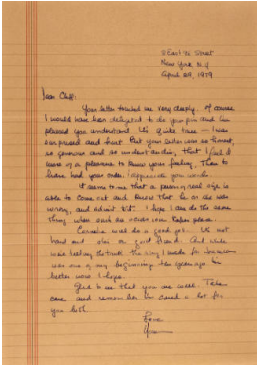 2 East 86 Street
New York N.Y
April 29, 1979
Dear Cliff:
Your letter touched me very deeply. Of course
I would have been delighted to do your pin and I'm
pleased you understand. It's quite true — I was
surprised and hurt. But your letter was so honest,
so generous and so understanding, that I feel it
more of a pleasure to know your feeling. Than to
have had your order. I appreciate your words.
It seems to me that a person of real size is
able to come out and know that he or she was
wrong, and admit it. I hope I can do the same
thing when such an occasion takes place.
will do a good job. It's not
hard and she is a good friend. And while
we're testing the truth the ring I made for
was one of my beginning ten years ago
better now I hope.
Glad to see that you are well. Take
care and remember I'm cared a lot for
you both.
Love